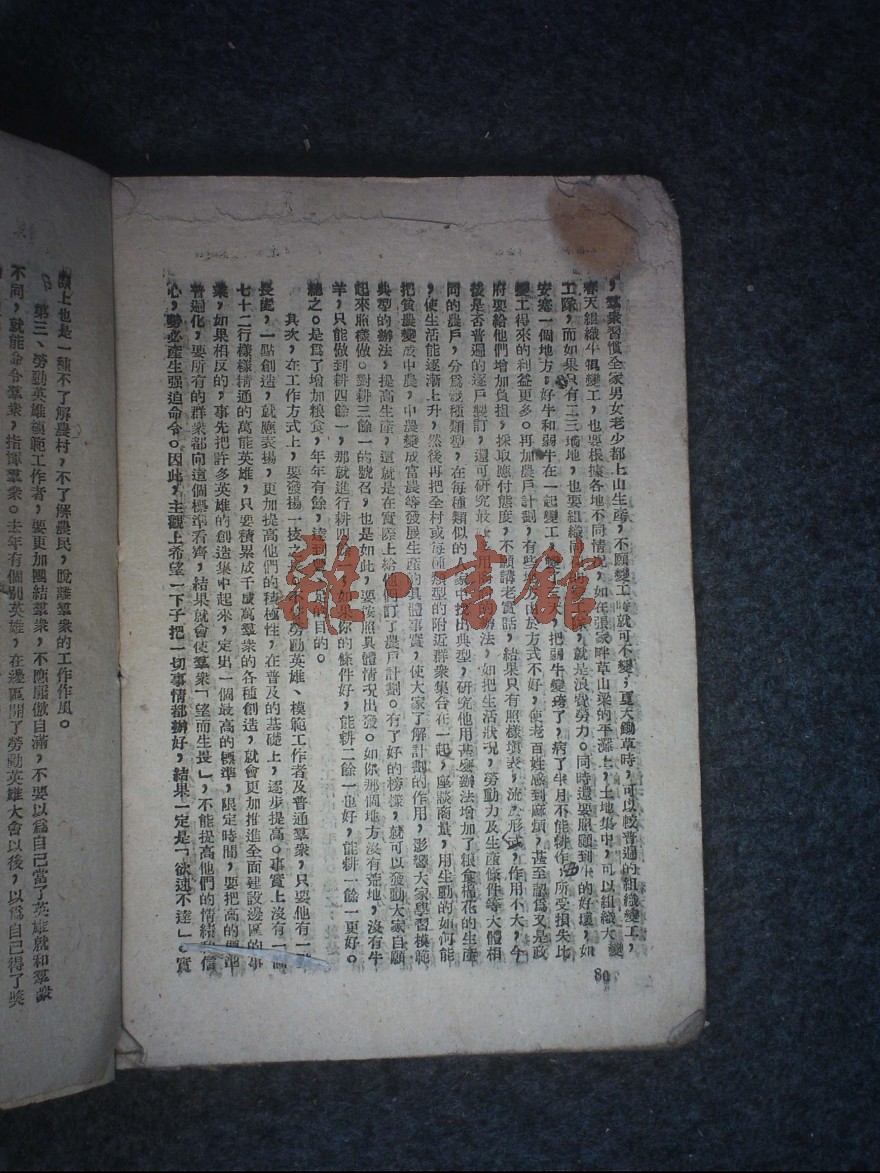 ，羣衆習慣全家男女老少都上山生產，不願變工時就可不變；夏天鋤草時，可以較普遍的組織變工，
春天組織牛犋變工，也要根據各地不同情況，如在張家畔草山梁的平灘上，土地集中，可以組織大變
工隊，而如果只有二三垧地，也要組織，就是浪費勞力。同時還要照顧到牛的好壞，如
安塞一個地方，好牛和弱牛在一起變工，天，把弱牛變垮了，病了半月不能耕作，所受損失比
變工得來的利益更多。再加農戶計劃，有些由於方式不好，使老百姓感到麻煩，甚至認爲又是政
府要給他們增加負担，採取應付態度，不願講老實話，結果只有照樣填表，流於形式，作用不大，今
後是否普遍的逐戶製訂，還可研究，辦法，如把生活狀況，勞動力及生產條件等大體相
同的農戶，分爲幾種類型，在每種類似的家中找出典型，研究他用甚麼辦法增加了粮食棉花的生產
，使生活能逐漸上升，然後再把全村或每種類型的附近群衆集合在一起，座談商量，用生動的如何能
把貧農變成中農，中農變成富農等發展生產的具體事實，使大家了解計劃的作用，影響大家學習模範
典型的辦法，提高生產，這就是在實際上給他訂了農戶計劃。有了好的榜樣，就可以發動大家自願
起來照樣做。對耕三餘一的號召，也是如此，要按照具體情況出發。如你那個地方沒有荒地，沒有牛
羊，只能做到耕四餘一，那就進行耕四餘一，如果你的條件好，能耕二餘一也好，能耕一餘一更好。
總之。是爲了增加粮食，年年有餘，達到足的目的。
其次，在工作方式上，要發揚一技之勞動英雄、模範工作者及普通羣衆，只要他有一
長處，一點創造，就應表揚，更加提高他們的積極性，在普及的基礎上，逐步提高。事實上沒有一個
七十二行樣樣精通的萬能英雄，只要積累成千成萬羣衆的各種創造，就會更加推進全面建設邊區的事
業，如果相反的，事先把許多英雄的創造集中起來，定出一個最高的標準，限定時間，要把高的標準
普遍化，要所有的群衆都向這個標準看齊，結果就會使羣衆「望而生畏」，不能提高他們的情緒與信
心，勢必產生强迫命令。因此，主觀上希望一下子把一切事情都辦好，結果一定是「欲速不達」。實
80
際上也是一種不了解農村，不了解農民，脫離羣衆的工作作風。
第三、勞動英雄模範工作者，要更加團結羣衆，不應驕傲自滿，不要以爲自己當了英雄就和羣衆
不同，就能命令羣衆，指揮羣衆。去年有個別英雄，在邊區開了勞動英雄大會以後，以爲自己得了獎
雅·書館